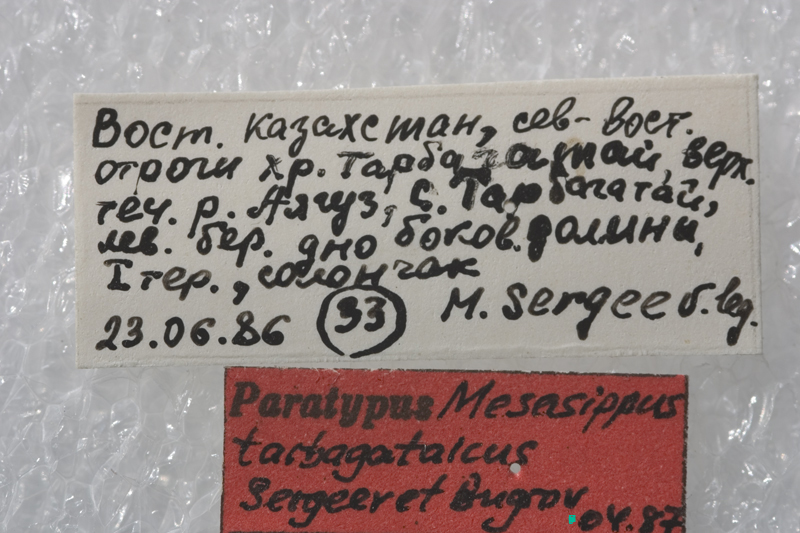 Вост. Казахстан, сев-вост.
отроги хр. Тарбагатай, верх.
теч. р. Аягуз, с. Тарбагатай,
лев. бер. дно боков. долины,
I тер., солончак
23.06.86 33 M. Sergeev leg.
Paratypus Mesasippus
tarbagataicus
Sergeev et Bugrov
04.87